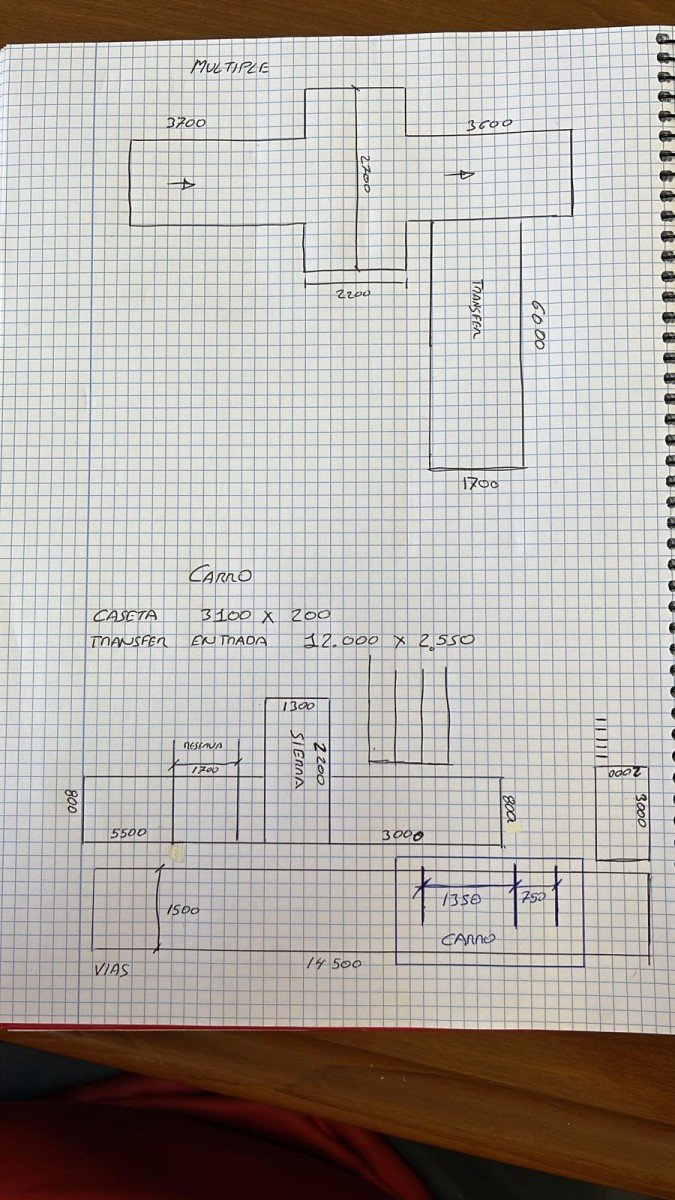 MULTIPLE
3700
3600
2700
2200
TRANSFER
6000
1700
CARRO
CASETA 3100 X 200
TRANSFER ENTRADA 12.000 X 2.550
1300
RESERVA
1700
SIERRA
2200
2000
3000
800
800
5500
3000
1350
750
1500
CARRO
VIAS
14500